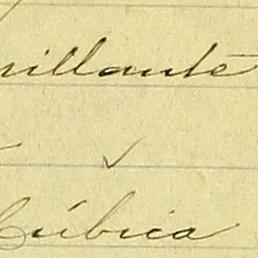 rillante
Cúbica